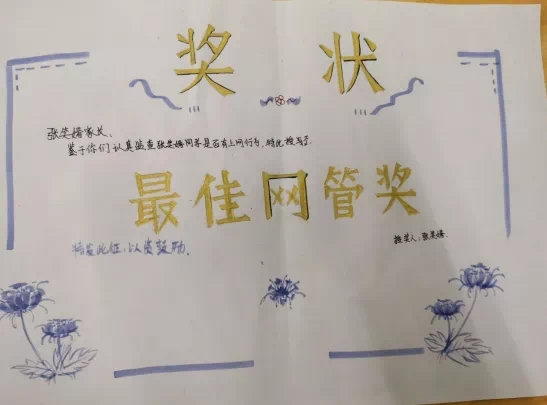 奖状
张奕婧家长、
鉴于你们认真监查张奕婧同学是否有上网行为，特此授予：
最佳网管奖
特发此证，以资鼓励。
授奖人：张奕婧